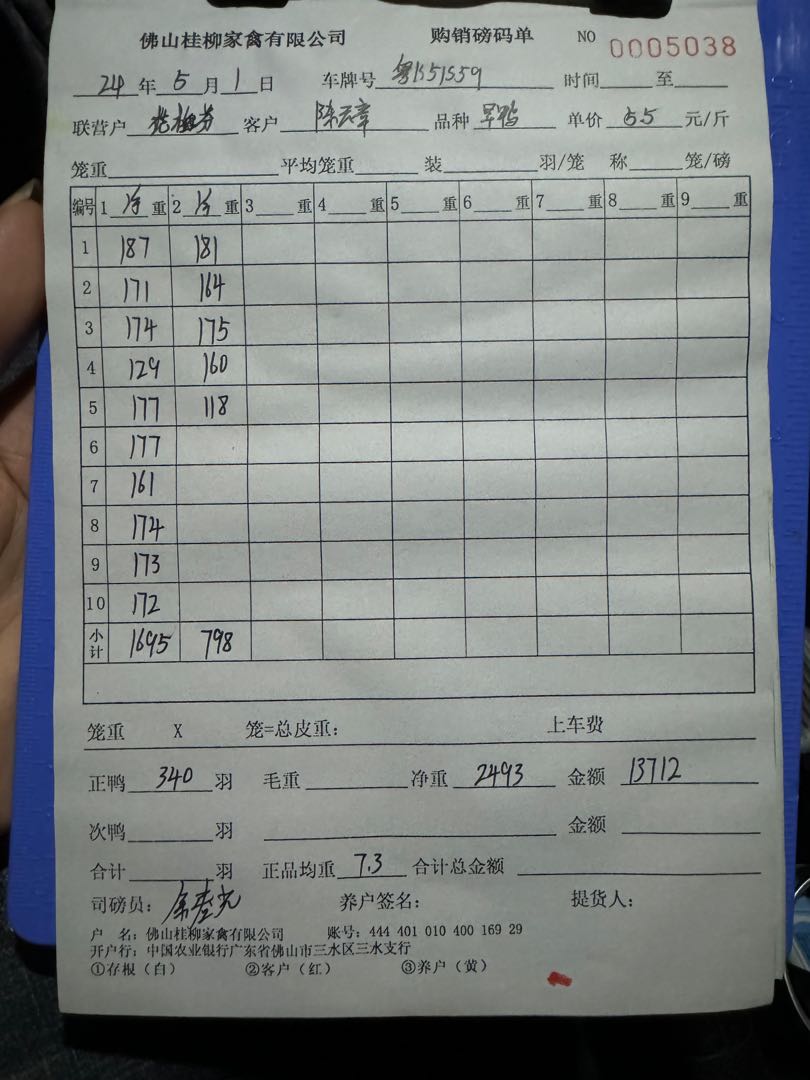 佛山桂柳家禽有限公司 购销磅码单 NO 0005038
24年5月1日 车牌号 粤B51S59 时间 至
联营户 客户 陈云章 品种 旱鸭 单价 5.5 元/斤
笼重 平均笼重 装 羽/笼 称 笼/磅
编号 1 净 重 2 净 重 3 重 4 重 5 重 6 重 7 重 8 重 9 重
1 187 181
2 171 164
3 174 175
4 129 160
5 177 118
6 177
7 161
8 174
9 173
10 172
小计 1695 798
笼重 X 笼=总皮重: 上车费
正鸭 340 羽 毛重 净重 2493 金额 13712
次鸭 羽 金额
合计 羽 正品均重 7.3 合计总金额
司磅员: 养户签名: 提货人:
户 名: 佛山桂柳家禽有限公司 账号: 444 401 010 400 169 29
开户行: 中国农业银行广东省佛山市三水区三水支行
①存根(白) ②客户(红) ③养户(黄)